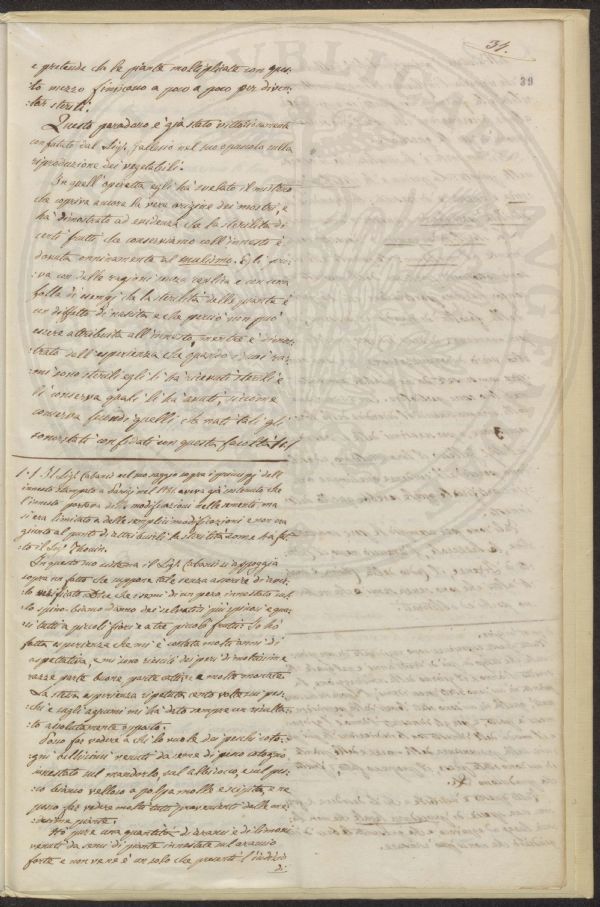 31.
39
e pretende che le piante moltiplicate con ques-
:to mezzo finiscano a poco a poco per diven-
:tar sterili.
Questo paradosso è già stato vittoriosamente
confutato dal Sigr. Gallesio nel suo opuscolo sulla
riproduzione dei vegetabili.
In quell'operetta egli ha svelato il mistero
che copriva ancora la vera origine dei mostri, e
ha dimostrato ad evidenza che la sterilità di
certi frutti che conserviamo coll'innesto è
dovuta onninamente al mulismo. Egli pro-
:va con delle ragioni senza replica e con una
folla di esempj che la sterilità delle piante è
un difetto di nascita e che perciò non può
essere attribuita all'innesto, mentre è dimos-
:trato dall'esperienza che quando i suoi ra-
:mi sono sterili egli li ha ricevuti sterili e
li conserva quali li ha avuti, siccome
conserva fecondi quelli che nati tali gli
sono stati confidati con questa facoltà (1)
(1) Il Sigr. Cabanis nel suo saggio sopra i principj dell'
innesto stampato a Parigi nel aveva già sostenuto che
l'innesto portava delle modificazioni nelle sementi, ma
si era limitato a delle semplici modificazioni e non era
giunto al punto di attribuirli la sterilità come ha fat-
:to il Sigr. Thouin.
In questo suo sistema il Sigr. Cabanis si appoggia
sopra un fatto che suppone tale senza averlo di
:to verificato che i semi di un pero innestato sul-
:lo spino bianco danno dei selvatici più spinosi e qua-
:si tutti a piccoli fiori e a piccoli frutti. Io ho
fatta esperienza che mi è costata molti anni di
aspettativa, e mi sono riusciti dei peri di moltissime
razze parte buone parte cattive e molte
La stessa esperienza ripetuta cento volte sui pes-
:chi e sugli agrumi mi ha dato sempre un risulta-
:to assolutamente opposto.
Posso far vedere a chi lo vuole dei peschi coto-
:gni bellissimi venuti da seme di pesco cotogno
innestato sul mandorlo, sul albicocco, e sul pes-
:co bianco velloso a polpa molle e scipita, e ne
posso far vedere molti tutti provenienti dalle me-
:desime piante.
Ho pure una quantità di aranci e di limoni
venuti da semi di piante innestate sul arancio
forte e non ve ne è un solo che presenti l'indizio
di